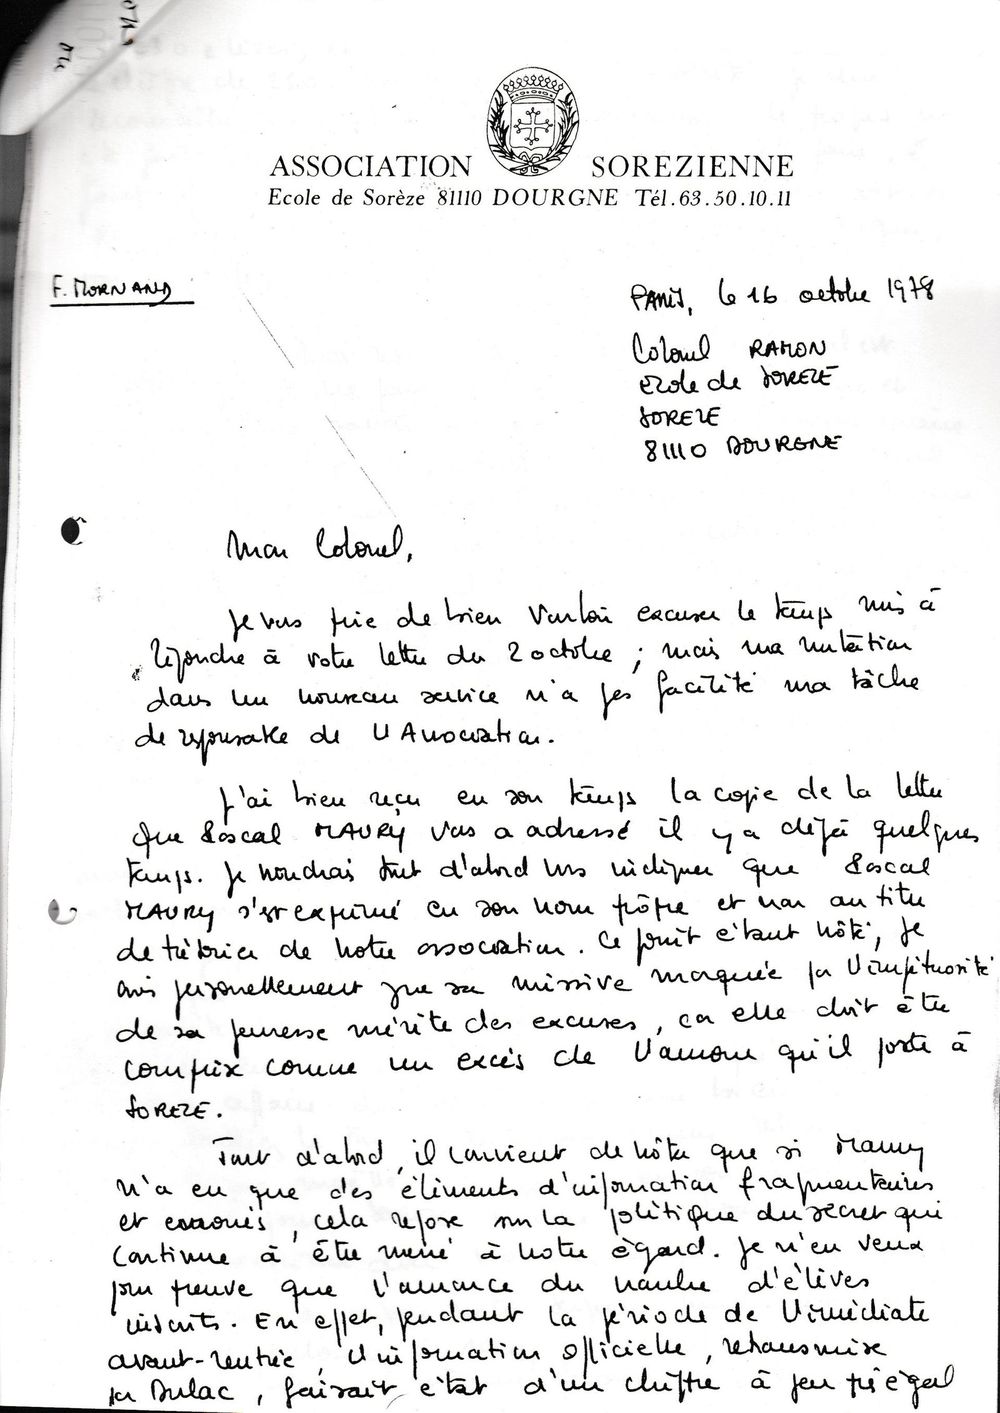 ASSOCIATION SOREZIENNE
Ecole de Sorèze 81110 DOURGNE Tél.63.50.10.11
F. MORNAND
PARIS, le 16 octobre 1978
Colonel RAMON
Ecole de SOREZE
SOREZE
81110 DOURGNE
Mon Colonel,
Je vous prie de bien vouloir excuser le temps mis à
répondre à votre lettre du 2 octobre ; mais ma mutation
dans un nouveau service n'a pas facilité ma tâche
de responsable de l'Association.
J'ai bien reçu en son temps la copie de la lettre
que Pascal MAURY vous a adressé il y a déjà quelques
temps. Je voudrais tout d'abord vous indiquer que Pascal
MAURY s'est exprimé en son nom propre et non au titre
de trésorier de notre association. Ce point étant noté, je
suis personnellement que sa missive marquée par l'impétuosité
de sa jeunesse mérite des excuses, car elle doit être
comprise comme un excès de l'amour qu'il porte à
SOREZE.
Tout d'abord, il convient de noter que si Maury
n'a eu que des éléments d'information fragmentaires
et erronés, cela repose sur la politique du secret qui
continue à être mené à notre égard. Je n'en veux
pour preuve que l'annonce du nombre d'élèves
inscrits. En effet, pendant la période de l'immédiate
avant-rentrée, l'information officielle, retransmise
par Dulac, faisait état d'un chiffre à peu près égal